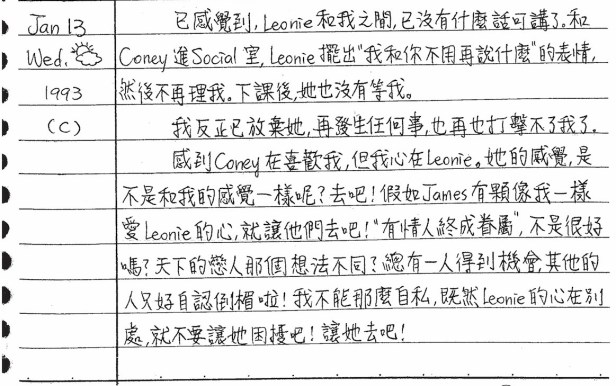 Jan 13 已感覺到, Leonie和我之間, 已沒有什麼話可講了。和
Wed. Coney進Social室, Leonie擺出"我和你不用再說什麼"的表情,
1993 然後不再理我。下課後, 她也沒有等我。
(C) 我反正已放棄她, 再發生任何事, 也再也打擊不了我了.
感到Coney在喜歡我, 但我心在Leonie。她的感覺, 是
不是和我的感覺一樣呢? 去吧! 假如James有顆像我一樣
愛Leonie的心, 就讓他們去吧! "有情人終成眷屬", 不是很好
嗎? 天下的戀人那個想法不同? 總有一人得到機會, 其他的
人只好自認倒楣啦! 我不能那麼自私, 既然Leonie的心在別
處, 就不要讓她困擾吧! 讓她去吧!